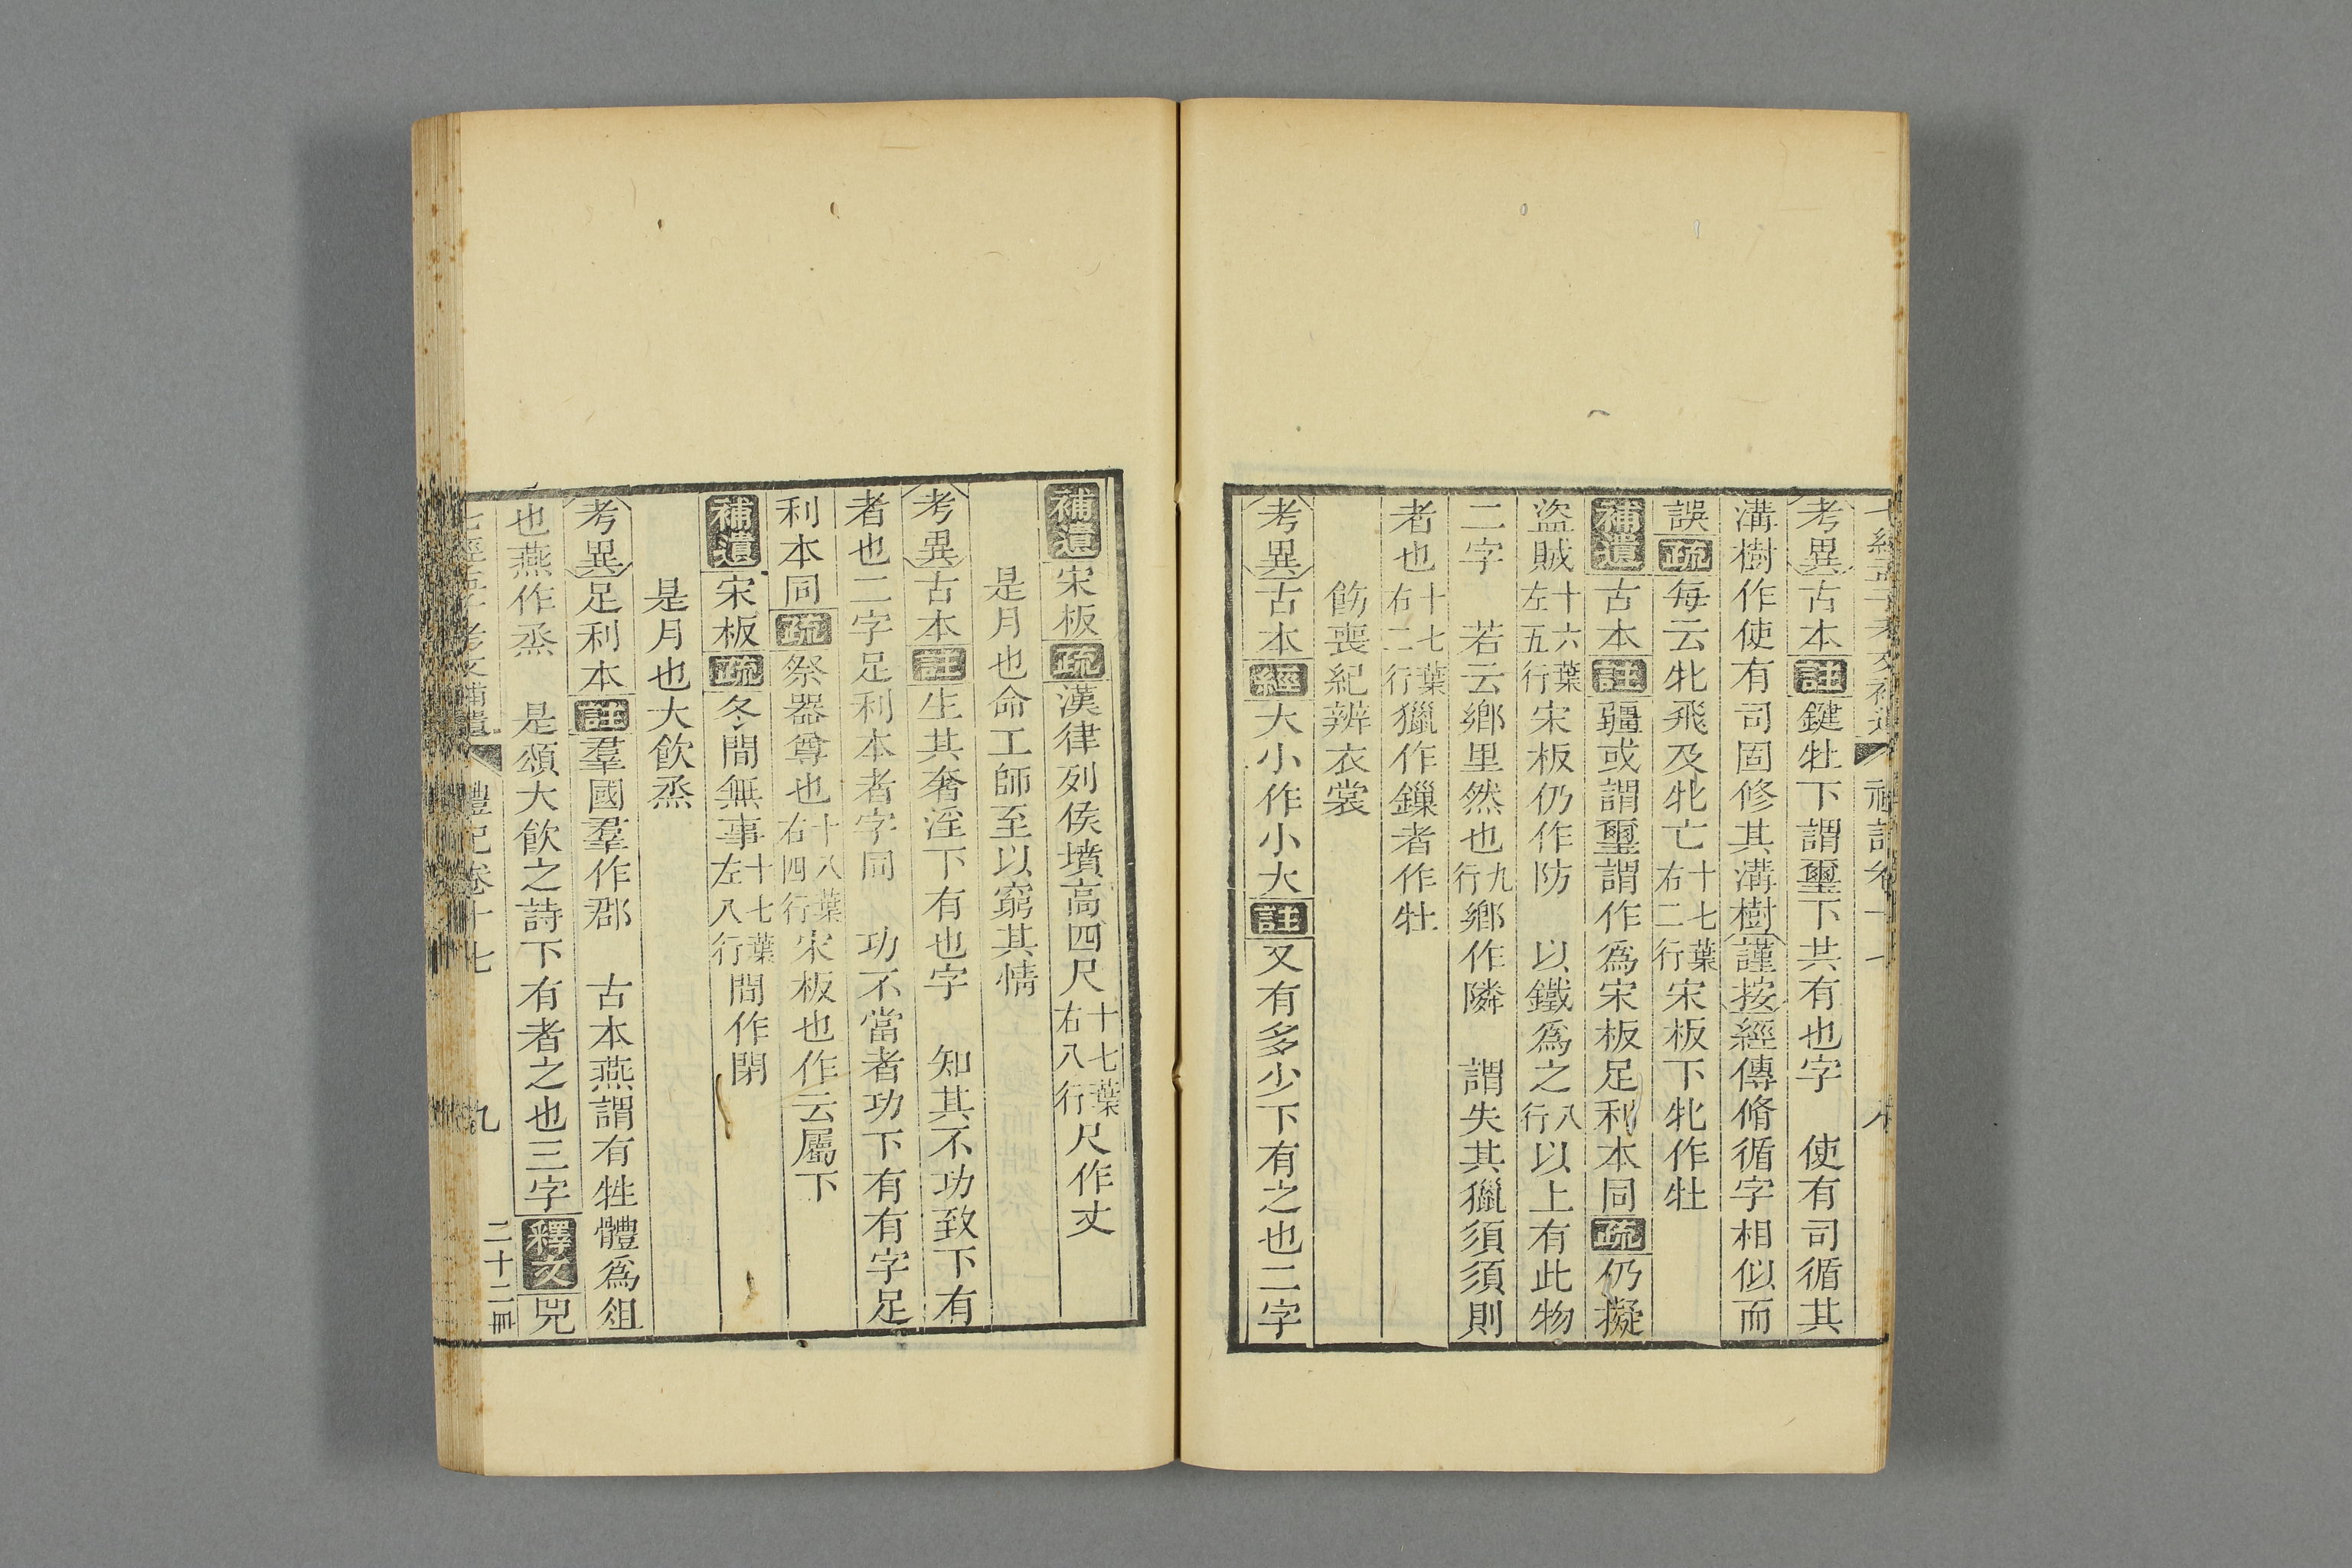 考異古本註鍵牡下謂璽下共有也字　使有司循其
溝樹作使有司固修其溝樹謹按經傳脩循字相似而
誤疏每云牝飛及牝亡十七葉右二行宋板下牝作牡
補遺古本註疆或謂璽謂作爲宋板足利本同疏仍擬
盜賊十六葉左五行宋板仍作防　以鐵爲之八行以上有此物
二字　若云鄉里然也九行鄉作隣　謂失其玁須須則
者也十七葉右二行玁作鏁者作牡
飭喪紀辨衣裳
考異古本經大小作小大註又有多少下有之也二字
補遺宋板疏漢律列侯墳高四尺十七葉右八行尺作丈
是月也命工師至以窮其情
考異古本註生其奢淫下有也字　知其不功致下有
者也二字足利本者字同　功不當者功下有有字足
利本同疏祭器尊也十八葉右四行宋板也作云屬下
補遺宋板疏冬間無事十七葉左八行間作閑
是月也大飲烝
考異足利本註羣國羣作郡　古本燕謂有牲體爲俎
也燕作烝　是頌大飲之詩下有者之也三字釋文兕
七經孟子考文補遺　禮記卷十七　九　二十二冊